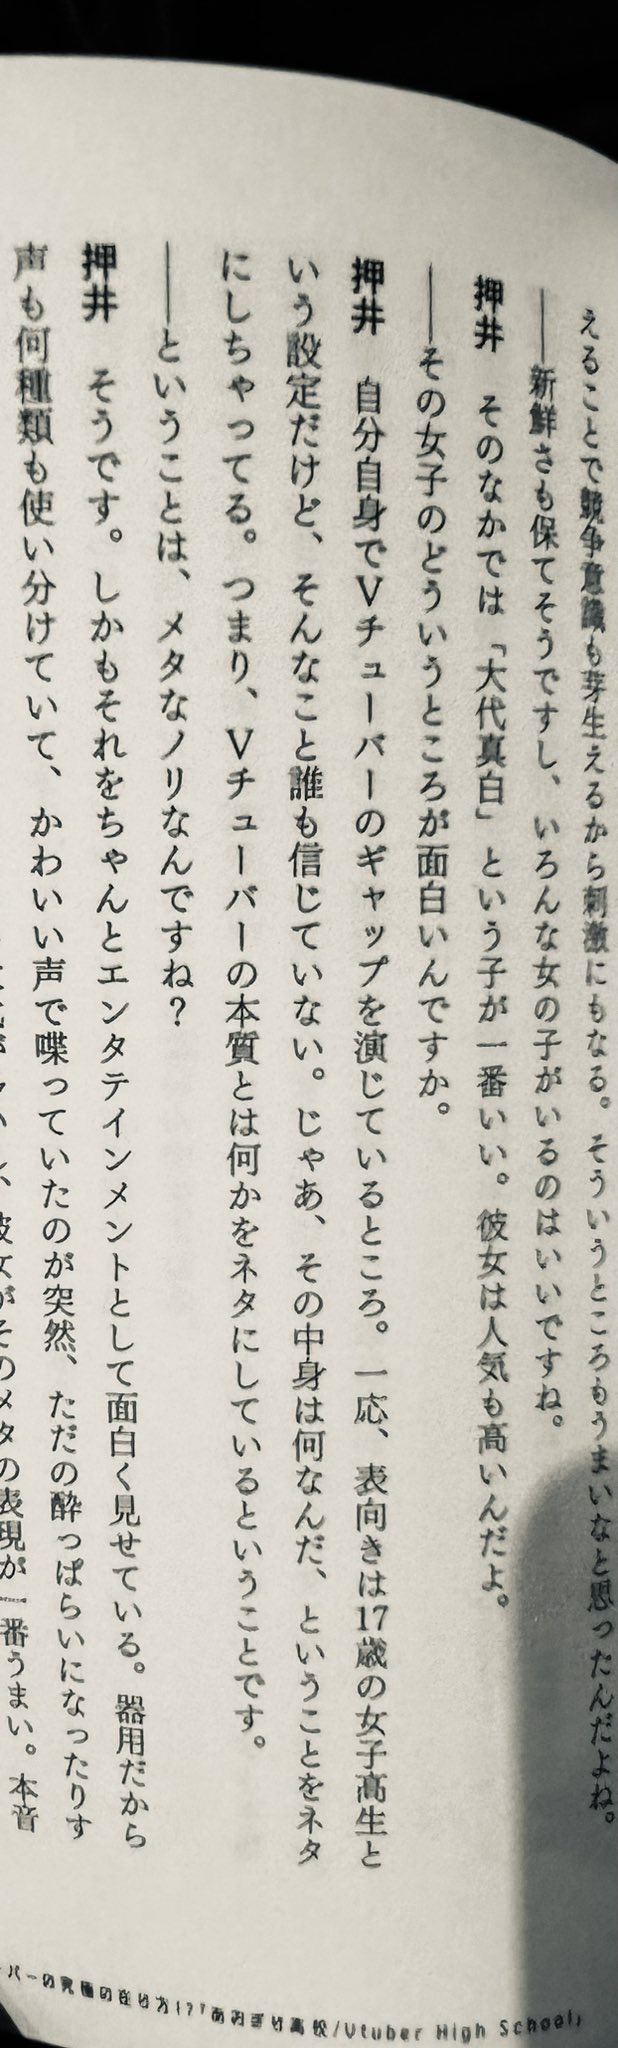 えることで競争意識も芽生えるから刺激にもなる。そういうところもうまいなと思ったんだよね。
――新鮮さも保てそうですし、いろんな女の子がいるのはいいですね。
押井　そのなかでは「大代真白」という子が一番いい。彼女は人気も高いんだよ。
――その女子のどういうところが面白いんですか。
押井　自分自身でVチューバーのギャップを演じているところ。一応、表向きは17歳の女子高生と
いう設定だけど、そんなこと誰も信じていない。じゃあ、その中身は何なんだ、ということをネタ
にしちゃってる。つまり、Vチューバーの本質とは何かをネタにしているということです。
――ということは、メタなノリなんですね？
押井　そうです。しかもそれをちゃんとエンタテインメントとして面白く見せている。器用だから
声も何種類も使い分けていて、かわいい声で喋っていたのが突然、ただの酔っぱらいになったりす
彼女がそのメタの表現が一番うまい。本音
バーの究極の在り方!?『あおぎり高校/Vtuber High School』